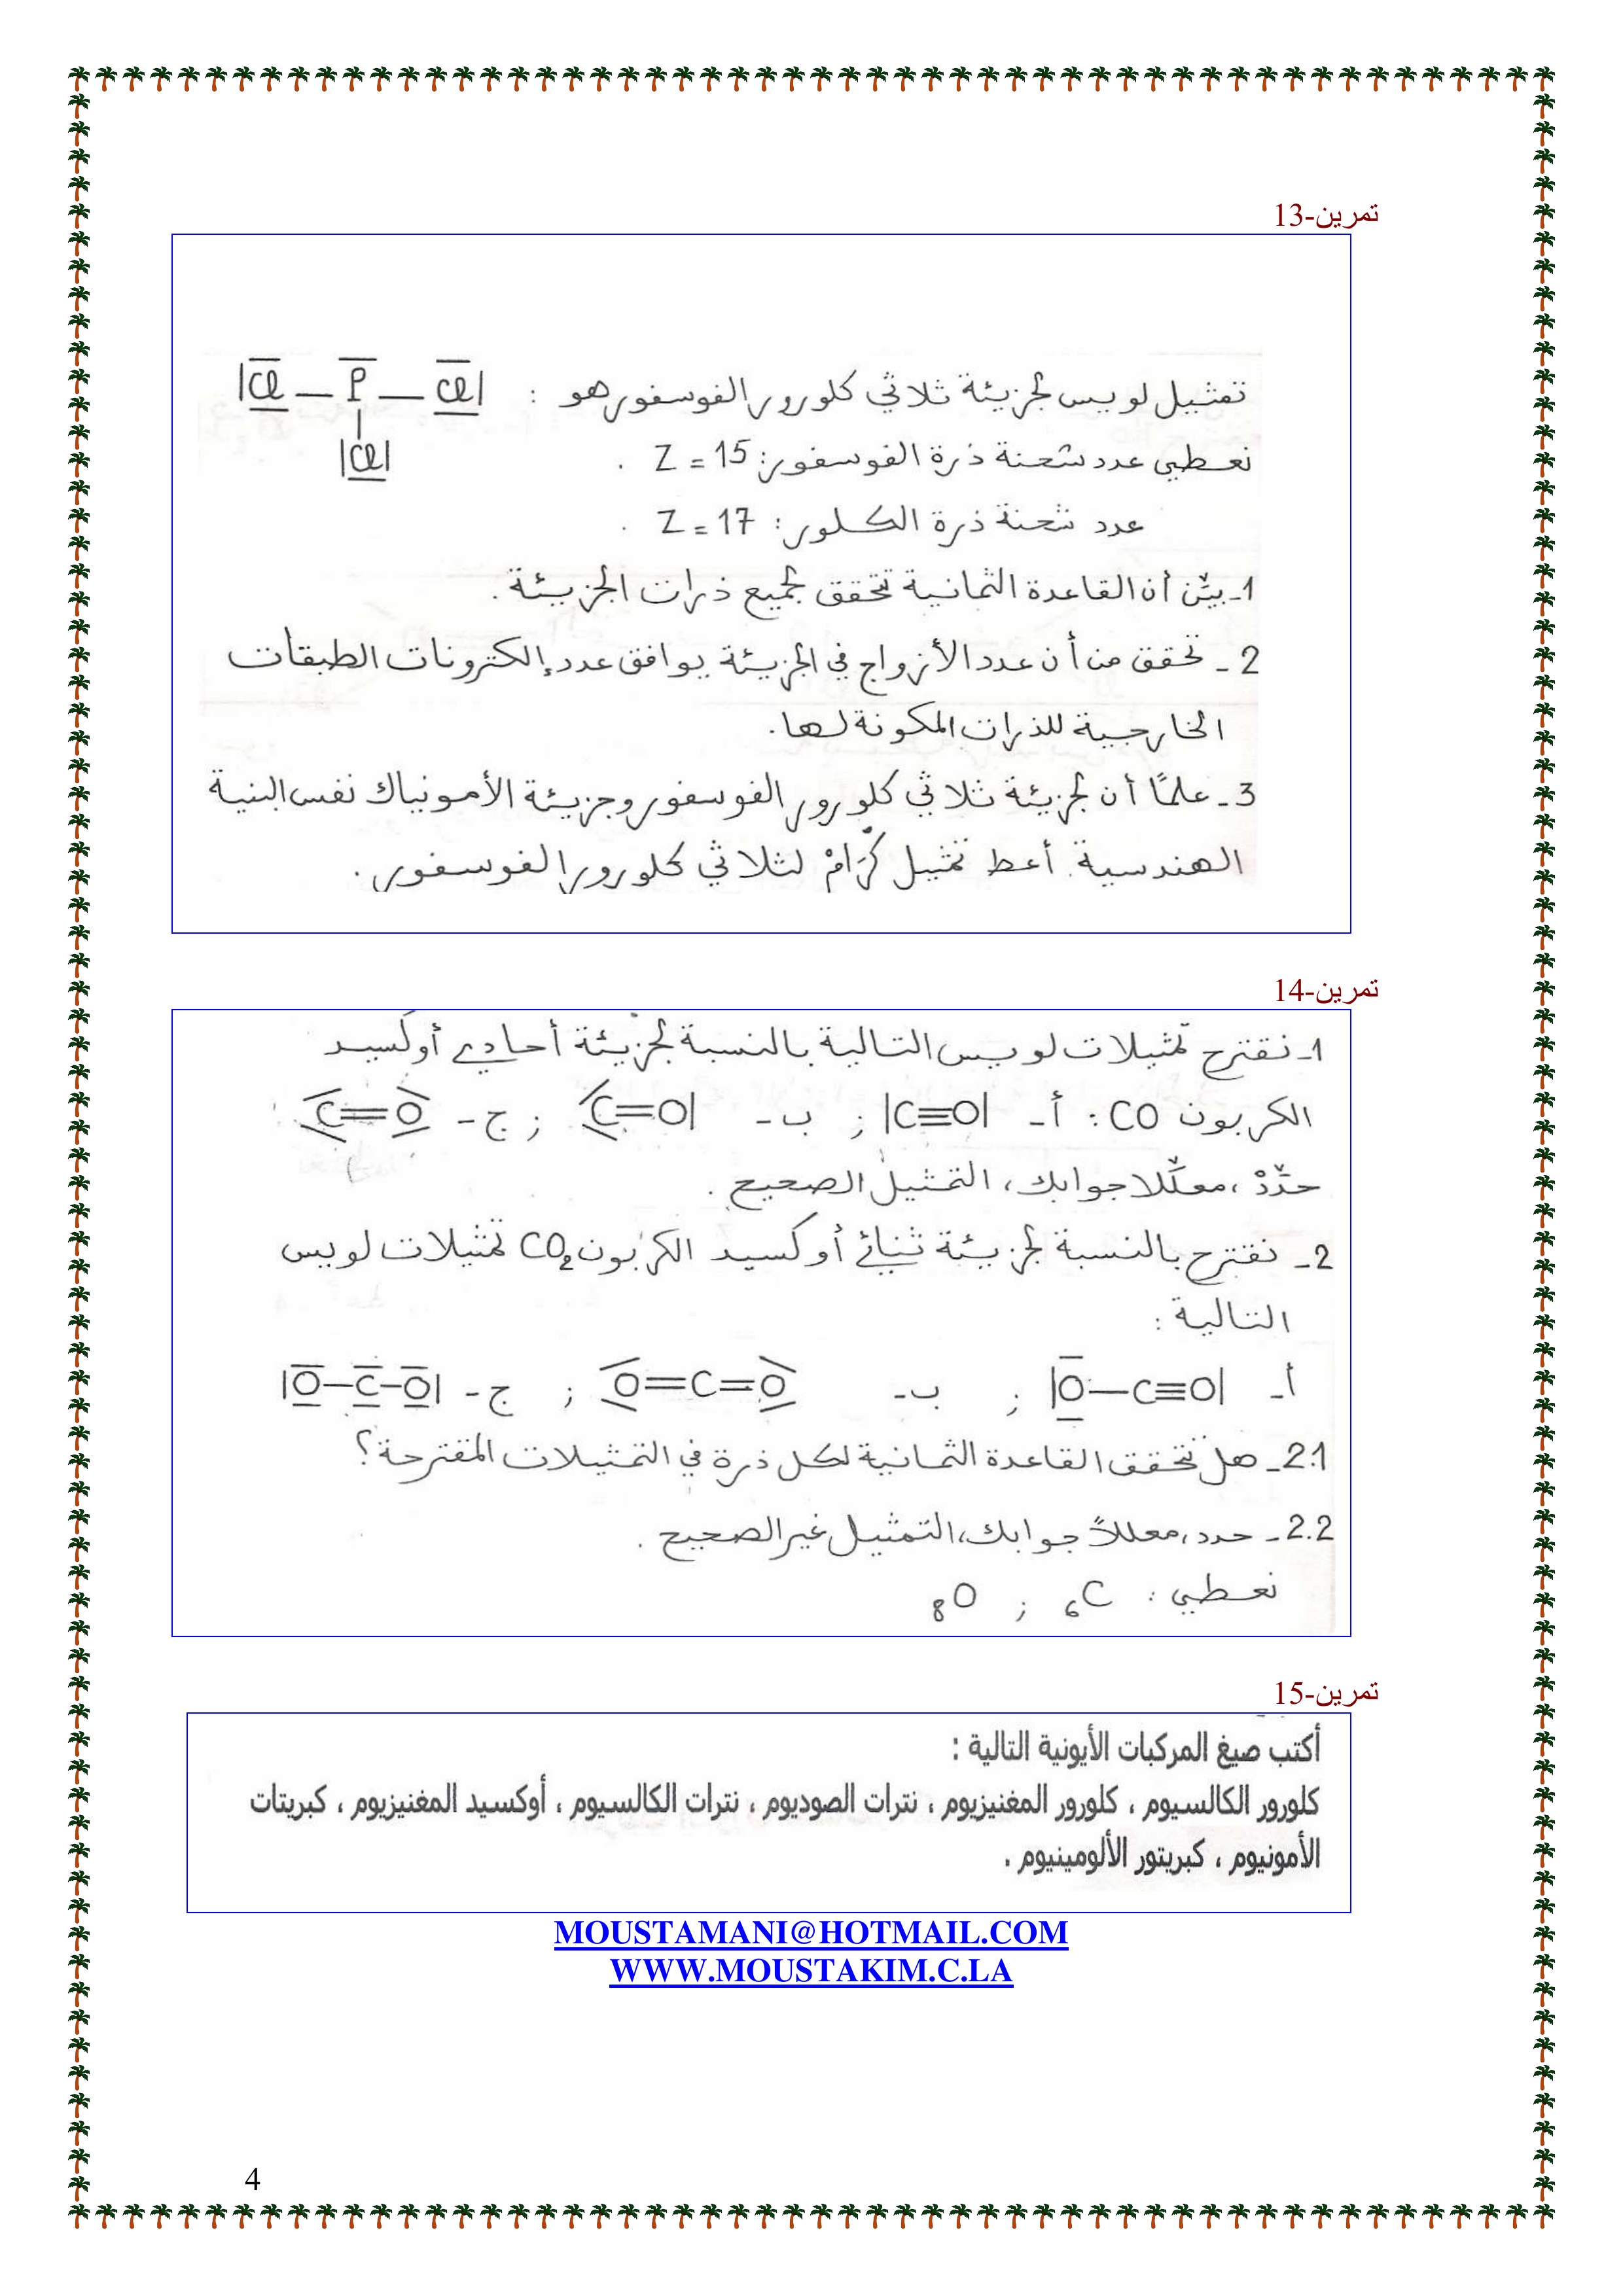 تمرين-13
تمثيل لويس لجزيئة ثلاثي كلورور الفوسفور هو :
|Cl — P — Cl|
|Cl|
نعطي عدد شحنة ذرة الفوسفور: Z = 15 .
عدد شحنة ذرة الكلور: Z = 17 .
1- بيّن أن القاعدة الثمانية تتحقق لجميع ذرات الجزيئة .
2 - تحقق من أن عدد الأزواج في الجزيئة يوافق عدد إلكترونات الطبقات
الخارجية للذرات المكونة لها .
3- علمًا أن لجزيئة ثلاثي كلورور الفوسفور وجزيئة الأمونياك نفس البنية
الهندسية أعط تمثيل كرَامْ لثلاثي كلورور الفوسفور .
تمرين-14
1- نقترح تمثيلات لويس التالية بالنسبة لجزيئة أحادي أوكسيد
الكربون CO : أ- |C≡O| ; ب- C=O| ; ج- C=O
حدّدْ ، معلّلا جوابك ، التمثيل الصحيح .
2- نقترح بالنسبة لجزيئة ثنائي أوكسيد الكربون CO₂ تمثيلات لويس
التالية :
أ- |O—C≡O| ; ب- O=C=O ; ج- |O—C—O|
2.1- هل تتحقق القاعدة الثمانية لكل ذرة في التمثيلات المقترحة ؟
2.2- حدد ، معللاً جوابك ، التمثيل غير الصحيح .
نعطي : ₆C ; ₈O
تمرين-15
أكتب صيغ المركبات الأيونية التالية :
كلورور الكالسيوم ، كلورور المغنيزيوم ، نترات الصوديوم ، نترات الكالسيوم ، أوكسيد المغنيزيوم ، كبريتات
الأمونيوم ، كبريتور الألومينيوم .
MOUSTAMANI@HOTMAIL.COM
WWW.MOUSTAKIM.C.LA
4